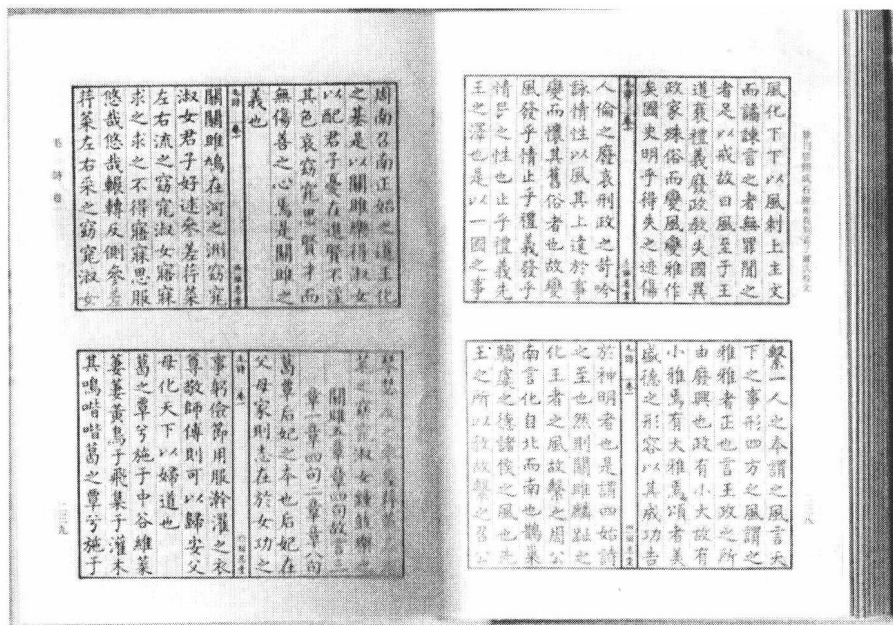 風化下下以風刺上主文
而譎諫言之者無罪聞之
者足以戒故曰風至于王
道衰禮義廢政教失國異
政家殊俗而變風變雅作
矣國史明乎得失之迹傷
毛詩 卷一
人倫之廢哀刑政之苛吟
詠情性以風其上達於事
變而懷其舊俗者也故變
風發乎情止乎禮義發乎
情民之性也止乎禮義先
王之澤也是以一國之事
繫一人之本謂之風言天
下之事形四方之風謂之
雅雅者正也言王政之所
由廢興也政有小大故有
小雅焉有大雅焉頌者美
盛德之形容以其成功告
毛詩 卷一
於神明者也是謂四始詩
之至也然則關雎麟趾之
化王者之風故繫之周公
南言化自北而南也鵲巢
騶虞之德諸侯之風也先
王之所以教故繫之召公
二三八
周南召南正始之道王化
之基是以關雎樂得淑女
以配君子憂在進賢不淫
其色哀窈窕思賢才而
無傷善之心焉是關雎之
義也
毛詩 卷一
關關雎鳩在河之洲窈窕
淑女君子好逑參差荇菜
左右流之窈窕淑女寤寐
求之求之不得寤寐思服
悠哉悠哉輾轉反側參差
荇菜左右采之窈窕淑女
毛詩 卷一
琴瑟友之參差荇菜左右
芼之窈窕淑女鍾鼓樂之
關雎五章章四句故言三
章一章四句二章章八句
葛覃后妃之本也后妃在
父母家則志在於女功之
毛詩 卷一
事躬儉節用服澣濯之衣
尊敬師傅則可以歸安父
母化天下以婦道也
葛之覃兮施于中谷維葉
萋萋黃鳥于飛集于灌木
其鳴喈喈葛之覃兮施于
二三九